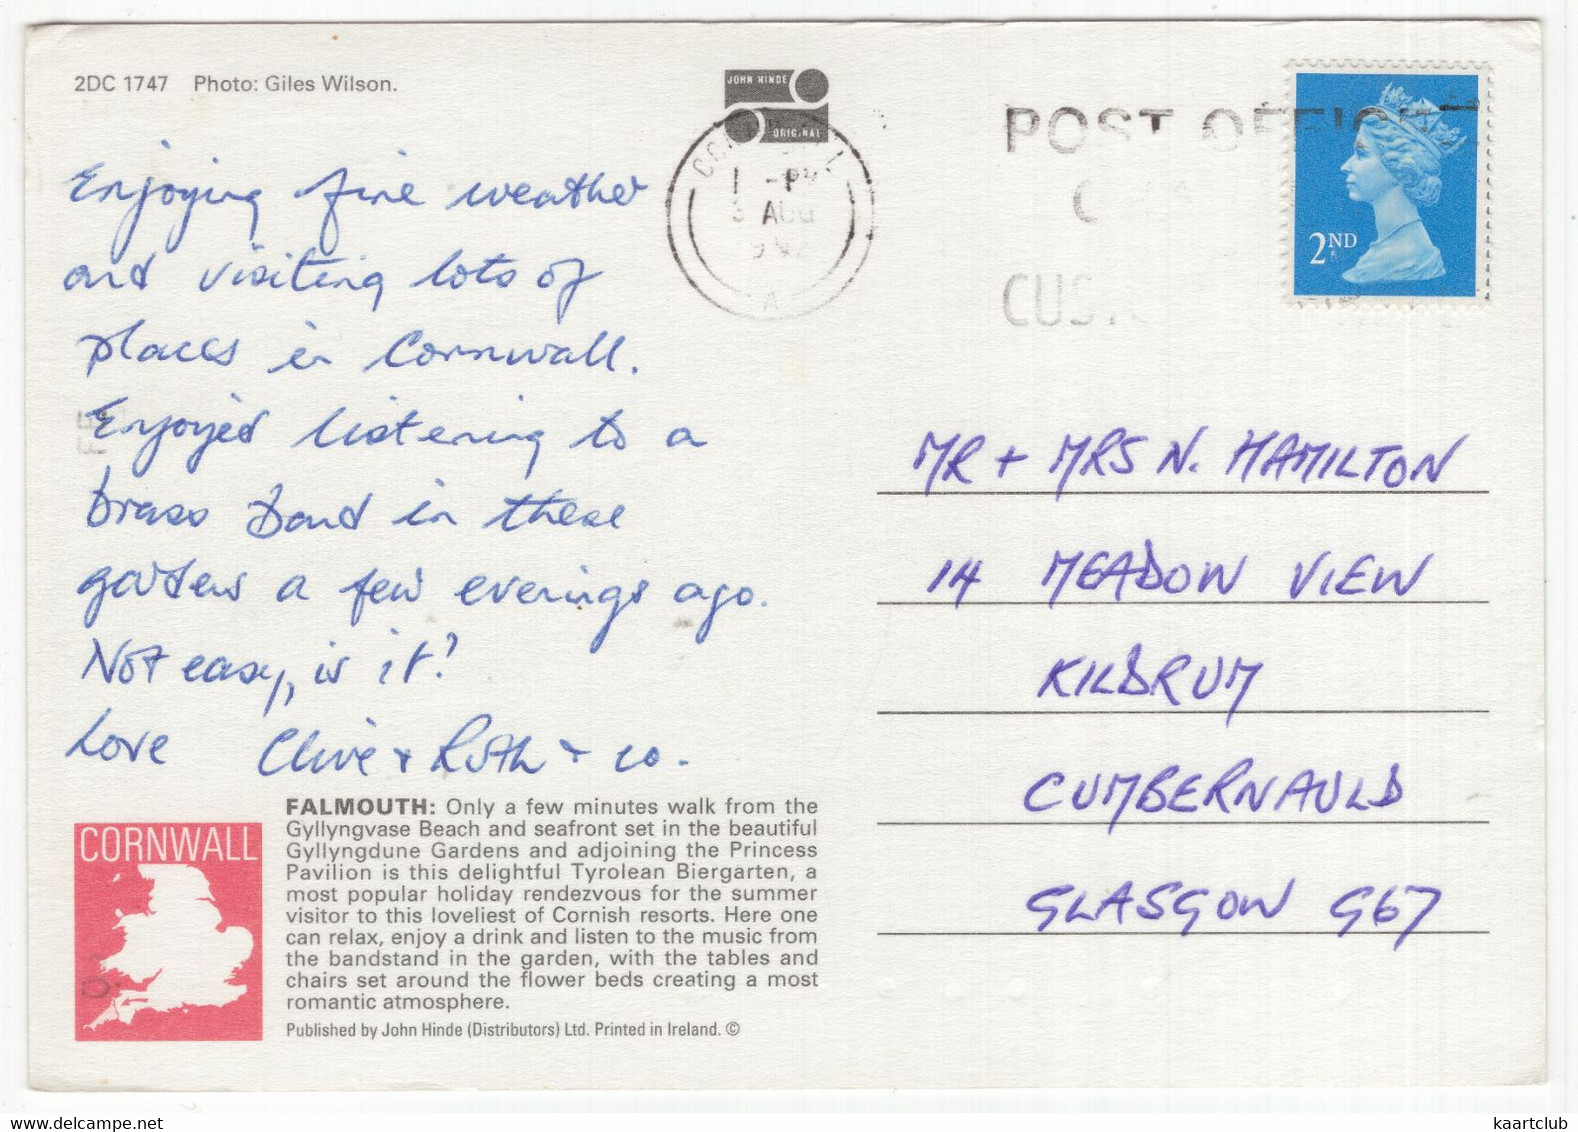 2DC 1747 Photo: Giles Wilson.
JOHN HINDE
ORIGINAL
Enjoying fine weather
and visiting lots of
places in Cornwall.
Enjoyed listening to a
brass band in these
gardens a few evenings ago.
Not easy, is it?
Love Clive + Ruth + co.
POST OFFICE
1 -PM
3 AUG
A
2ND
MR + MRS N. HAMILTON
14 MEADOW VIEW
KILDRUM
CUMBERNAULD
GLASGOW G67
CORNWALL
FALMOUTH: Only a few minutes walk from the
Gyllyngvase Beach and seafront set in the beautiful
Gyllyngdune Gardens and adjoining the Princess
Pavilion is this delightful Tyrolean Biergarten, a
most popular holiday rendezvous for the summer
visitor to this loveliest of Cornish resorts. Here one
can relax, enjoy a drink and listen to the music from
the bandstand in the garden, with the tables and
chairs set around the flower beds creating a most
romantic atmosphere.
Published by John Hinde (Distributors) Ltd. Printed in Ireland. ©
https://www.delcampe.net
kaartclub